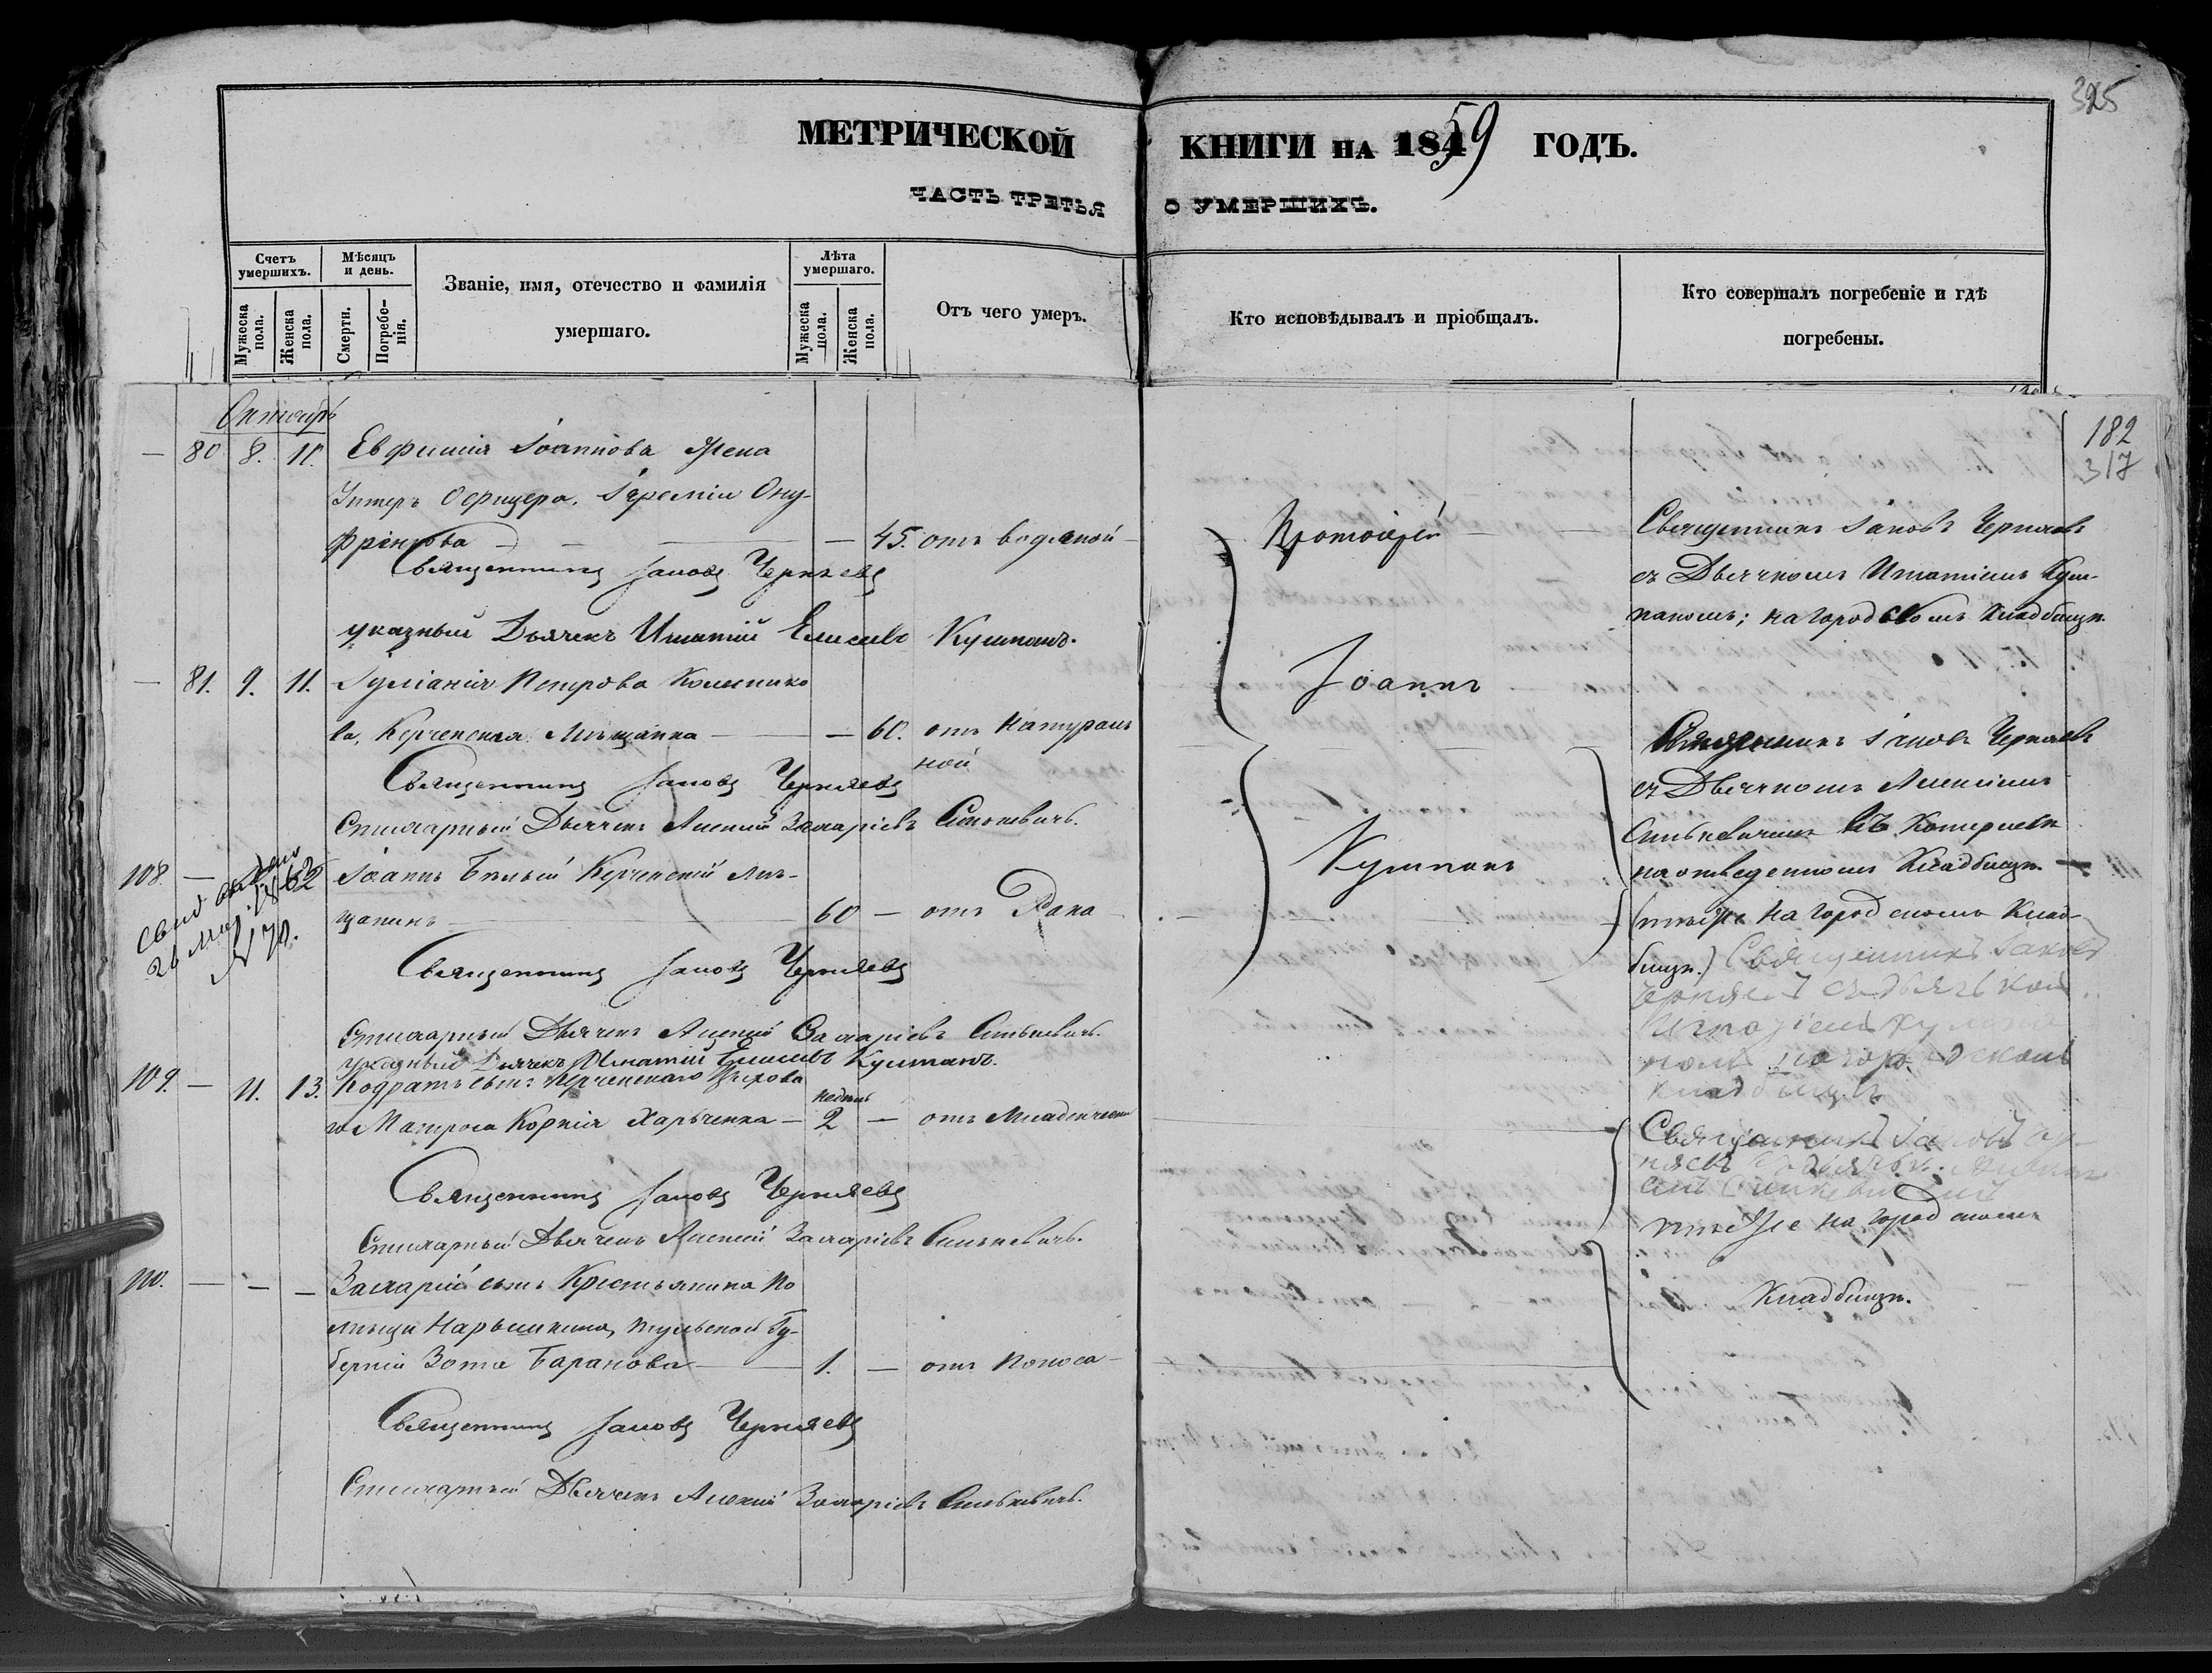 325
МЕТРИЧЕСКОЙ КНИГИ НА 1859 ГОДЪ.
ЧАСТЬ ТРЕТЬЯ О УМЕРШИХЪ.
Счетъ умершихъ.
Мужеска пола.
Женска пола.
Мѣсяцъ и день.
Смерти.
Погребенія.
Званіе, имя, отечество и фамилія
умершаго.
Лѣта умершаго.
Мужеска пола.
Женска пола.
Отъ чего умеръ.
Кто исповѣдывалъ и пріобщалъ.
Кто совершалъ погребеніе и гдѣ
погребены.
182
317
Октябрь
— 80 8. 11. Евфимія Іоаннова Жена
Унтеръ Офицера, Іереміи Ону-
фріенкова — 45. отъ водяной
Священникъ Іаковъ Черняевъ
указный Дьячекъ Игнатій Елисеевъ Кушпанъ.
— 81. 9. 11. Іуліанія Петрова Колеснико
ва, Керченская Мѣщанка — — 60. отъ Натураль
ной
Священникъ Іаковъ Черняевъ
Стихарный Дьячекъ Алексій Захаріевъ Синькевичъ.
108. — Іоаннъ Бѣлый Керченскій мѣ-
щанинъ — 60 — отъ Рака
свид выдано
26 1862
№ 78.
Священникъ Іаковъ Черняевъ
Стихарный Дьячекъ Алексій Захаріевъ Синькевичъ.
указный Дьячекъ Игнатій Елисеевъ Кушпанъ.
109. — 11. 13. Кодратъ сынъ Керченскаго
го Матроса Корнія Харьченка — недѣль 2 — отъ Младенческой
Священникъ Іаковъ Черняевъ
Стихарный Дьячекъ Алексій Захаріевъ Синькевичъ.
110. — — — Захарій сынъ Крестьянина По
мѣщи Нарышкина, Тульской Гу-
берніи Зота Баранова — 1. — отъ Поноса
Священникъ Іаковъ Черняевъ
Стихарный Дьячекъ Алексій Захаріевъ Синькевичъ.
Протоіерей
Іоаннъ
Кушпанъ
Священникъ Іаковъ Черняевъ
съ Дьячкомъ Игнатіемъ Куш-
паномъ; на городскомъ Кладбищѣ.
Священникъ Іаковъ Черняевъ
съ Дьячкомъ Алексіемъ
Синькевичемъ въ
на отведенномъ Кладбищѣ.
(тоже на городскомъ Клад-
бищѣ.) Священникъ Іаковъ
Черняевъ съ дьячком
Игнатіемъ Кушпа
номъ на городскомъ
кладбищѣ
Священникъ Іаковъ Чер-
няевъ съ дьячкомъ
тоже на городскомъ
Кладбищѣ.